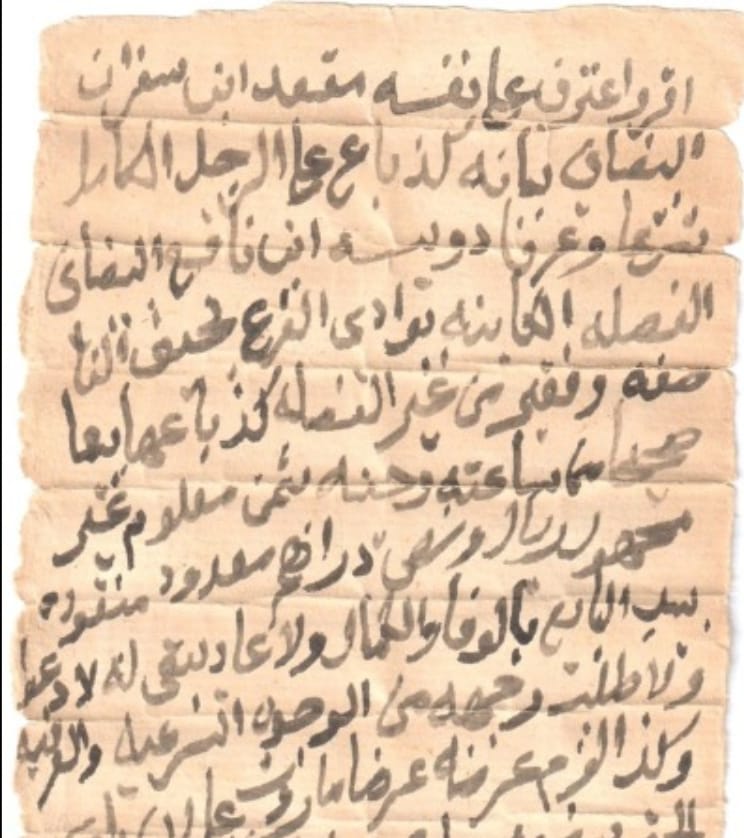 اقر واعترف على نفسه مقعد ابن سفران
البضاى بانه كذ باع على الرجل الكامل
شرعا وعرفا دويسه ابن نافع البضاى
الفصله الكاينه بوادى الفرع
صفه وفقير من غير الفصله كذ باعها بيعا
صحيحا من ساعته وحينه بثمن معلوم غير
مجهول ريال ونصف دراهم معدود منقوده
بيد البايع بالوفا والكمال ولا عاد بقى له لا دعوا
ولا طلب وجهه من الوجوه الشرعيه والفرقيه
وكذ الفرم عرضه عرضا